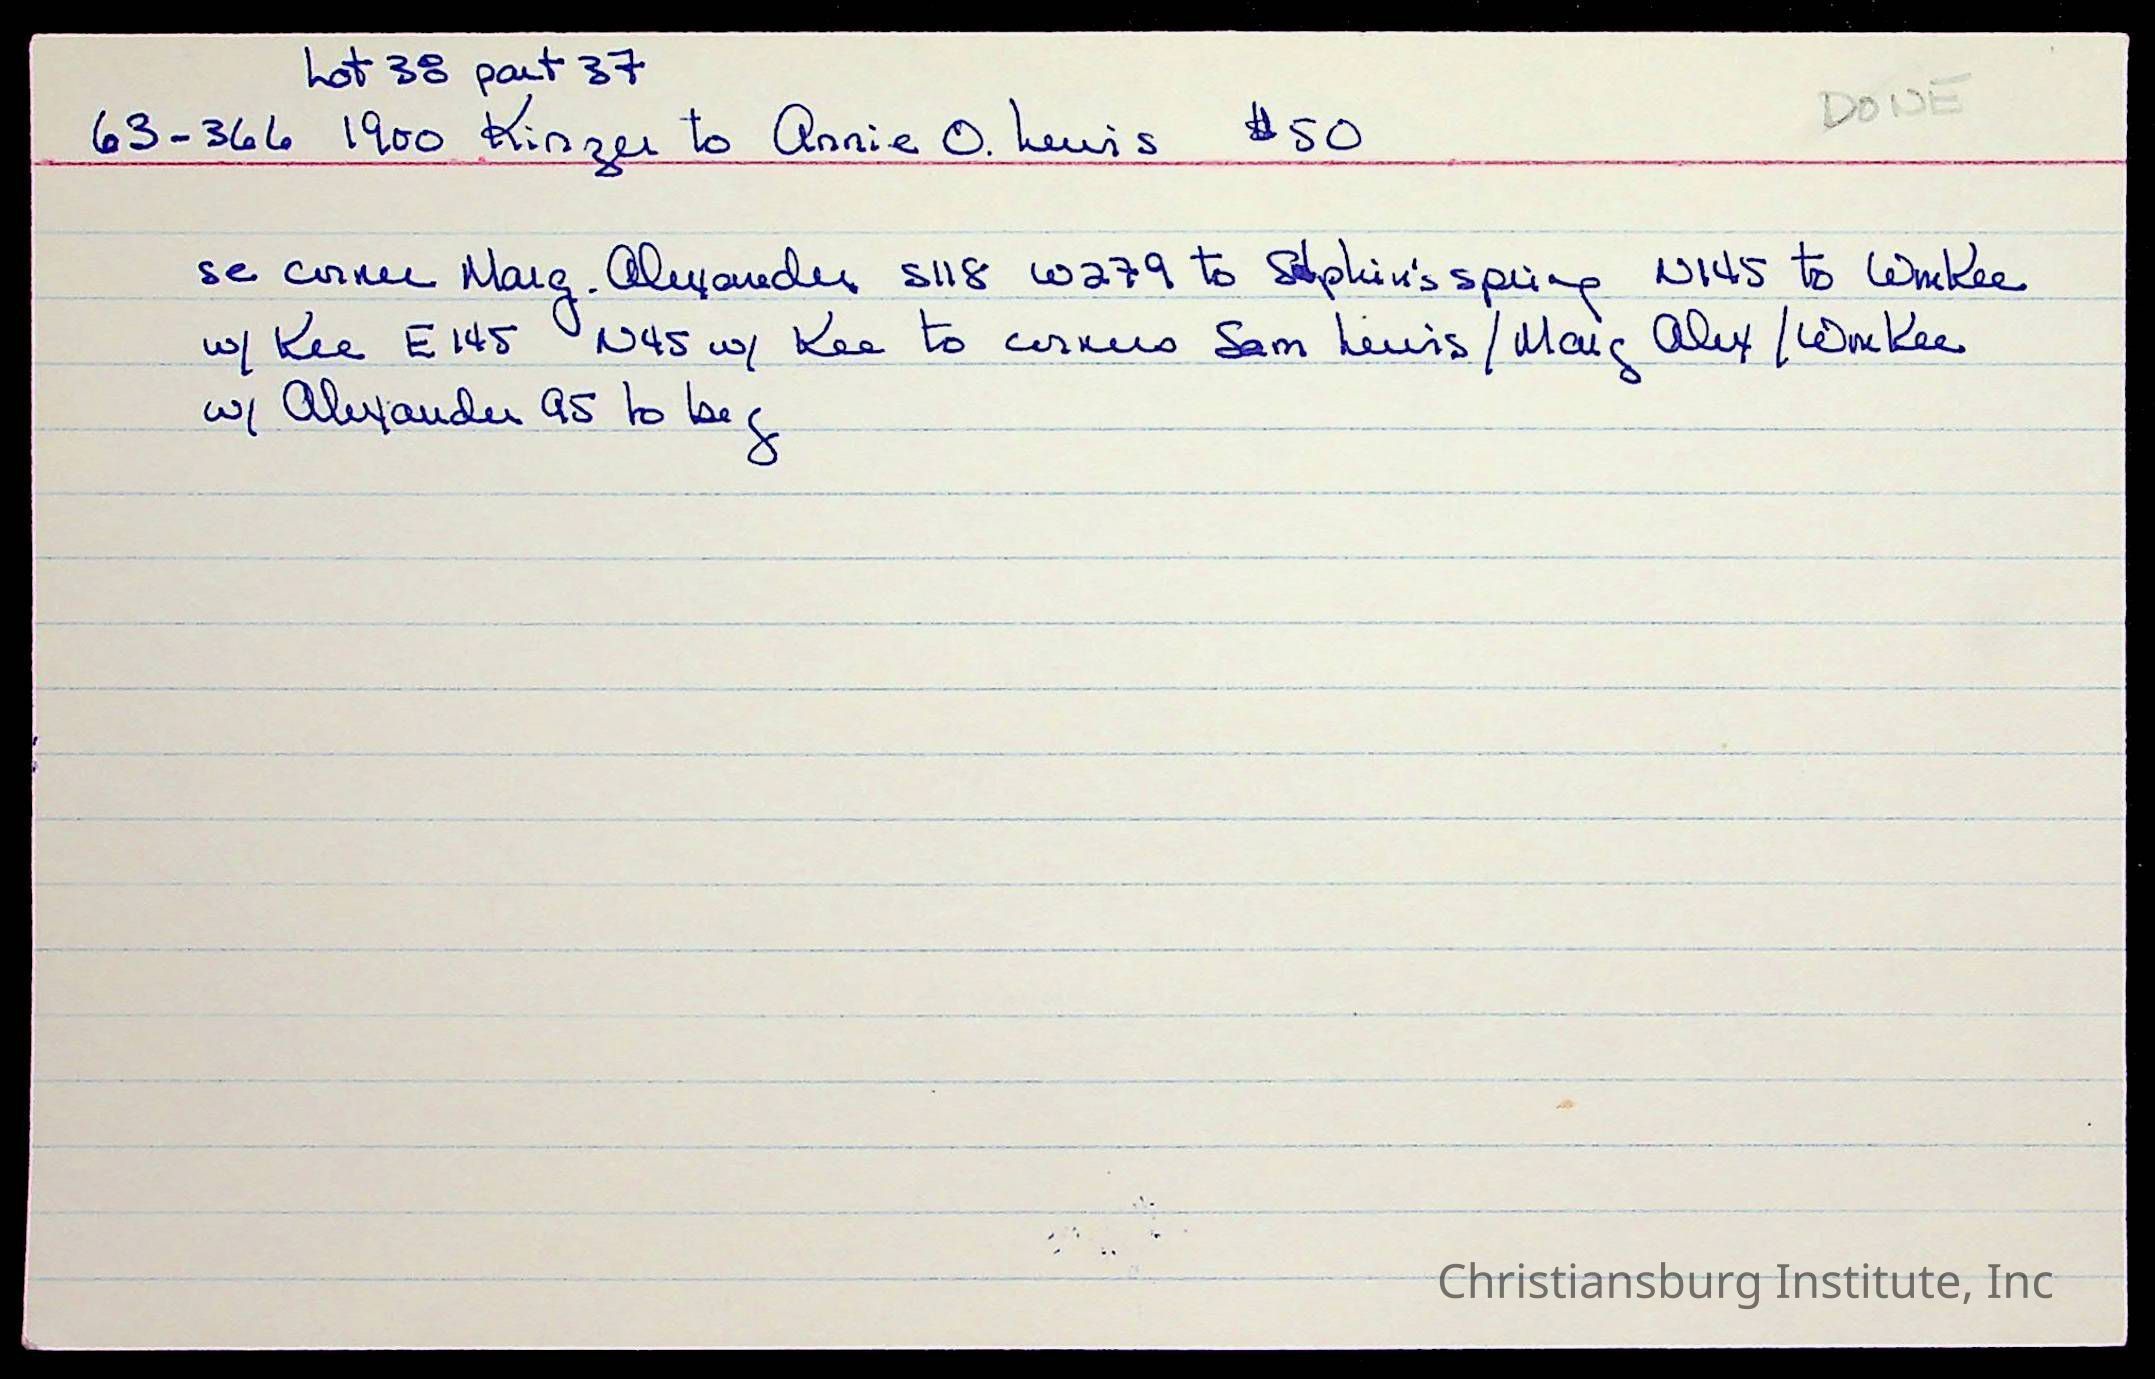 Lot 38 part 37
DONE
63-366 1900 Kinzer to Annie O. Lewis $50
se corner Marg. Alexander S118 W279 to Stephen's spring N145 to Wm Kee
w/ Kee E145 N45 w/ Kee to corners Sam Lewis / Marg Alex / Wm Kee
w/ Alexander 95 to beg
Christiansburg Institute, Inc